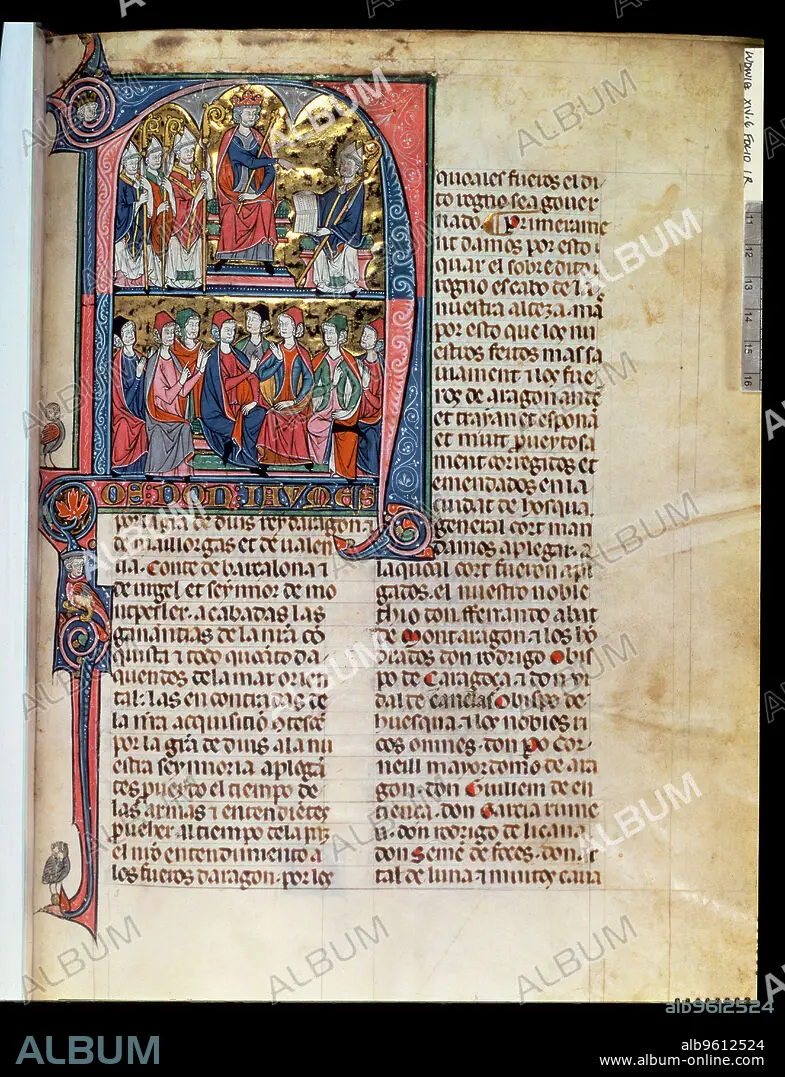 LUDWIG XIV.6 FOLIO 1R
11
12
13
14
15
16
OS DON IAVMES
por la gra de dius rey daragon ⁊
de maillorgas et de ualen
cia. Conte de barcalona ⁊
de urgel et seynnor de mo
ntpesler. acabadas las
ganantias de la nra co
quista ⁊ todo quanto da
quent
tal. las encontradas de
la nra acquisitio
por la gra de dius a la nu
estra seynnoria aplega
tes puesto el tiempo de
las armas ⁊
al tiempo de la paz
el nro entendimiento a
los fueros daragon. por los
quoales fueros el di
to regno sea gouer
nado. Primerame
nt damos por esto
quar el sobredito
regno es cabo de la
nuestra alteza.
por esto que los nu
estros feitos
los fue
ros de aragon ante
et trayan et espona
et muit prueytosa
ment corregitos et
emendados en la
ciudat de huosqua.
general cort man
damos aplegar.
la quoal cort fueron apl
gatos. el nuestro noble
thio don fferrando abat
de Montaragon ⁊ los ho
ndratos don rodrigo Obis
po de Caragoça ⁊ don vi
dal de canelas Obispo de
huesqua. ⁊ los nobles ri
cos omnes. don po cor
neill mayordomo de ara
gon. don Guillem de en
tença. don Garcia rume
u. don rodrigo de liçana.
don Semen de foces. don ar
tal de luna ⁊ muitos caua
ALBUM
alb9612524
ALBUM
alb9612524
www.album-online.com